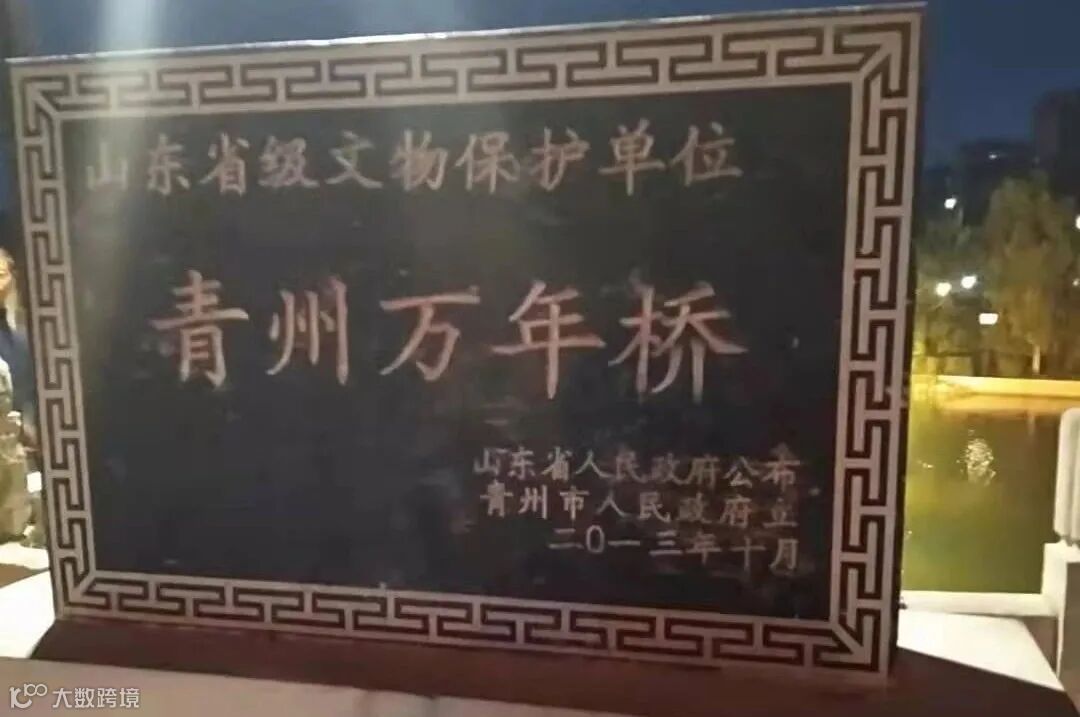 山东省级文物保护单位
青州万年桥
山东省人民政府公布
青州市人民政府立
二〇一三年十月
大数跨境